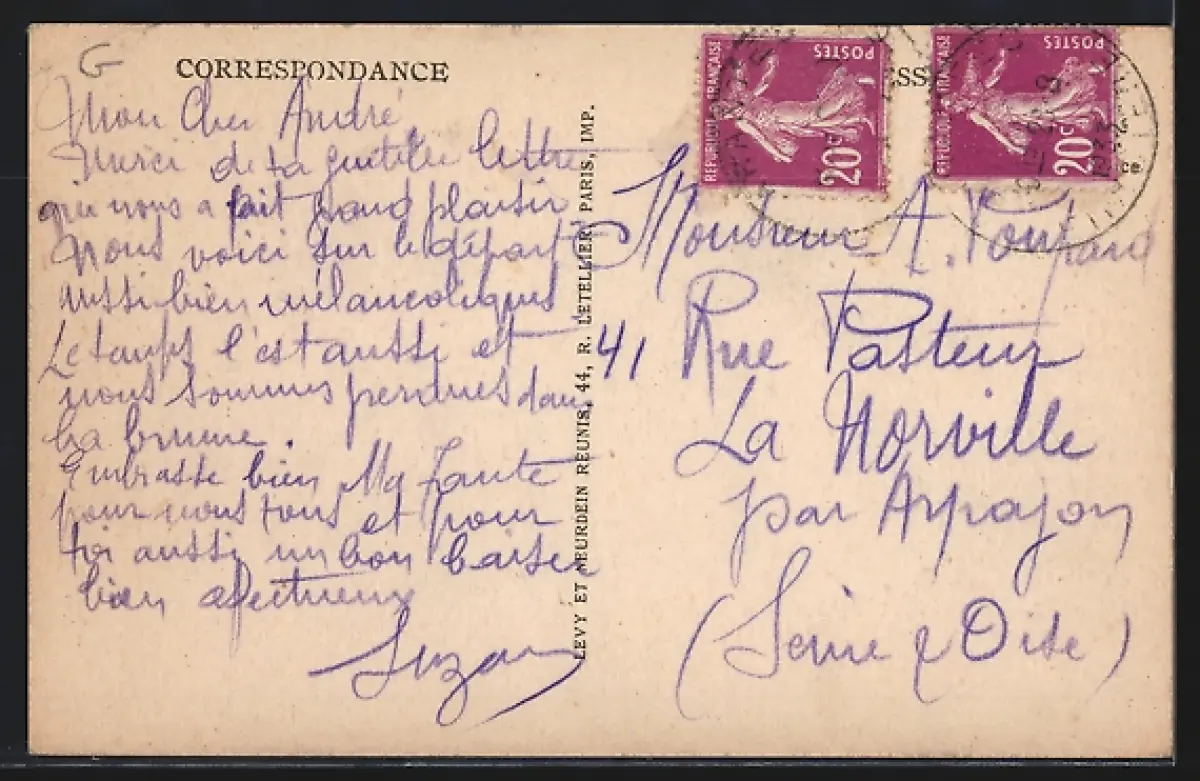 G
CORRESPONDANCE
Mon Cher André
Merci de ta gentille lettre
qui nous a fait grand plaisir
Nous voici sur le départ
aussi bien mélancoliques
Le temps l'est aussi et
nous sommes perdues dans
la brume.
Embrasse bien Ma Tante
pour nous tous et pour
toi aussi un bon baiser
bien affectueux
Suzan
LEVY ET NEURDEIN REUNIS, 44, R. LETELLIER, PARIS, IMP.
REPUBLIQUE FRANÇAISE
POSTES
20c
REPUBLIQUE FRANÇAISE
POSTES
20c
Monsieur A.
41 Rue Pasteur
La Norville
par Arpajon
(Seine & Oise)